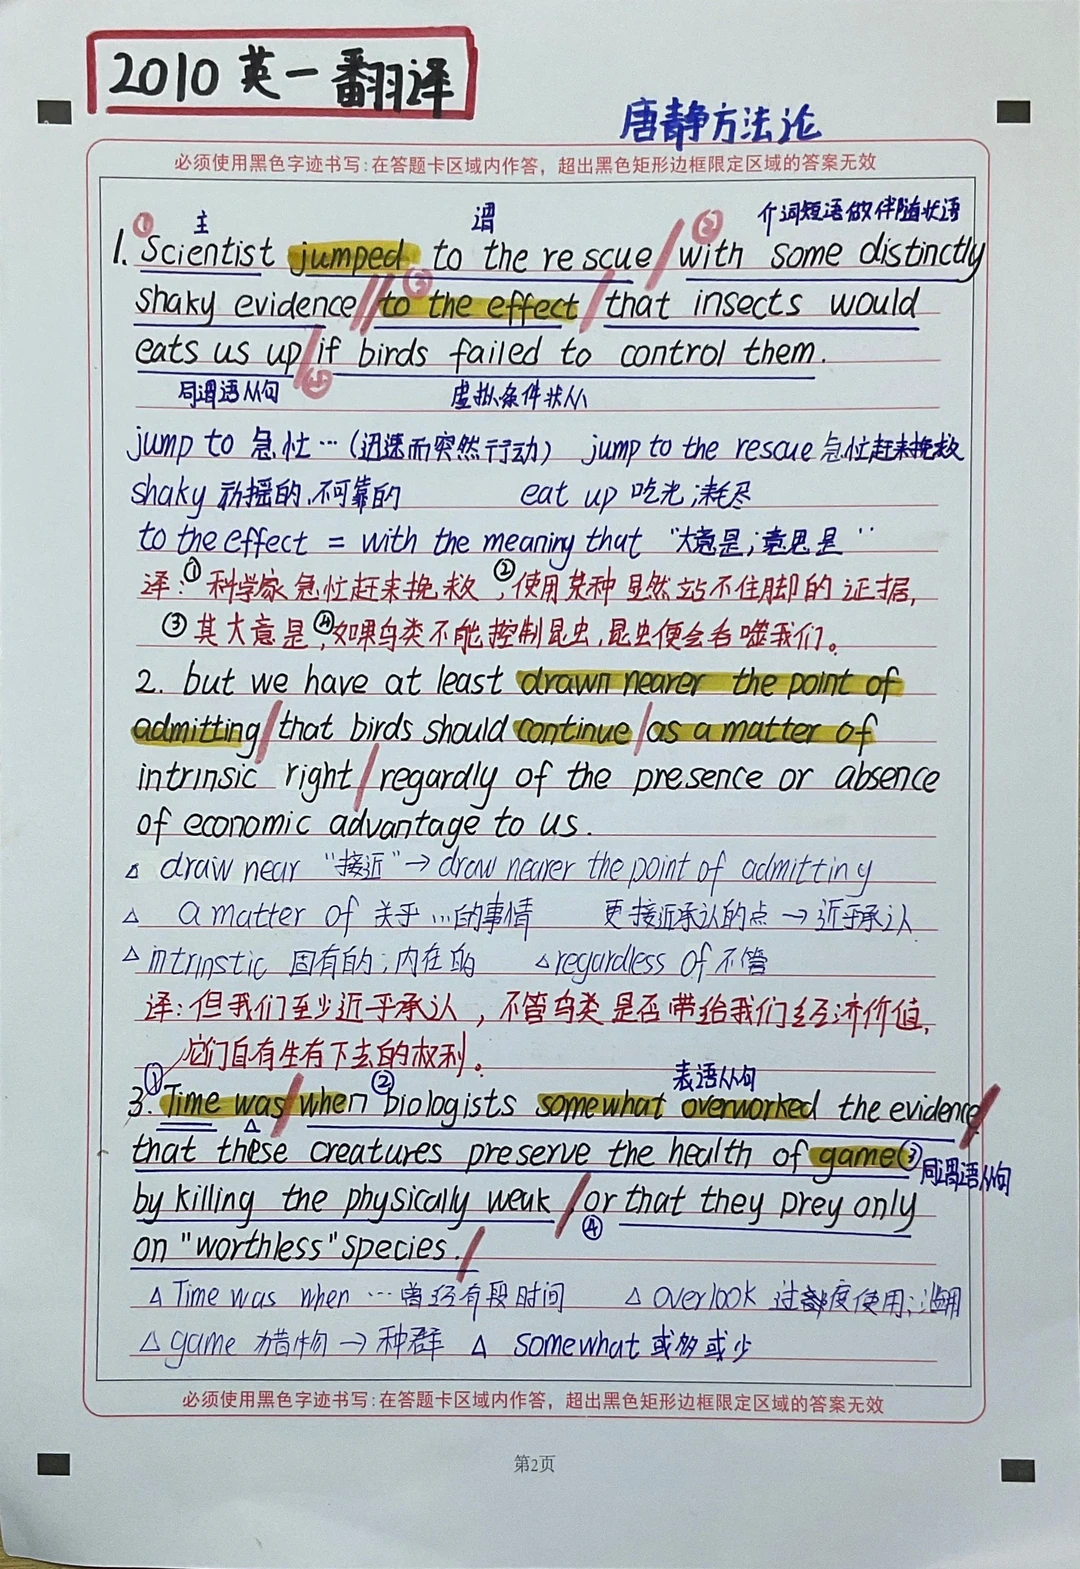 2010 英一翻译
唐静方法论
必须使用黑色字迹书写:在答题卡区域内作答，超出黑色矩形边框限定区域的答案无效
① 主 谓 ② 介词短语做伴随状语
1. Scientist jumped to the rescue / with some distinctly
shaky evidence // ③ to the effect / that insects would
eats us up / if birds failed to control them.
同谓语从句 ④ 虚拟条件状从
jump to 急忙…(迅速而突然行动) jump to the rescue 急忙赶来挽救
shaky 动摇的,不可靠的 eat up 吃光;耗尽
to the effect = with the meaning that “大意是;意思是”
译: ① 科学家急忙赶来挽救 ②,使用某种显然站不住脚的证据,
③ 其大意是, ④ 如果鸟类不能控制昆虫,昆虫便会吞噬我们。
2. but we have at least drawn nearer the point of
admitting / that birds should continue / as a matter of
intrinsic right / regardly of the presence or absence
of economic advantage to us.
△ draw near “接近” → draw nearer the point of admitting
△ a matter of 关乎…的事情 更接近承认的点 → 近乎承认
△ intrinstic 固有的;内在的 △ regardless of 不管
译:但我们至少近乎承认,不管鸟类是否带给我们经济价值,
它们自有生有下去的权利。
① ② 表语从句
3. Time was / when biologists somewhat overworked the evidence /
that these creatures preserve the health of game ③ 同谓语从句
by killing the physically weak / or that they prey only
④
on "worthless" species. /
△ Time was when … 曾经有段时间 △ overlook 过度使用;滥用
△ game 猎物 → 种群 △ somewhat 或多或少
必须使用黑色字迹书写:在答题卡区域内作答，超出黑色矩形边框限定区域的答案无效
第2页